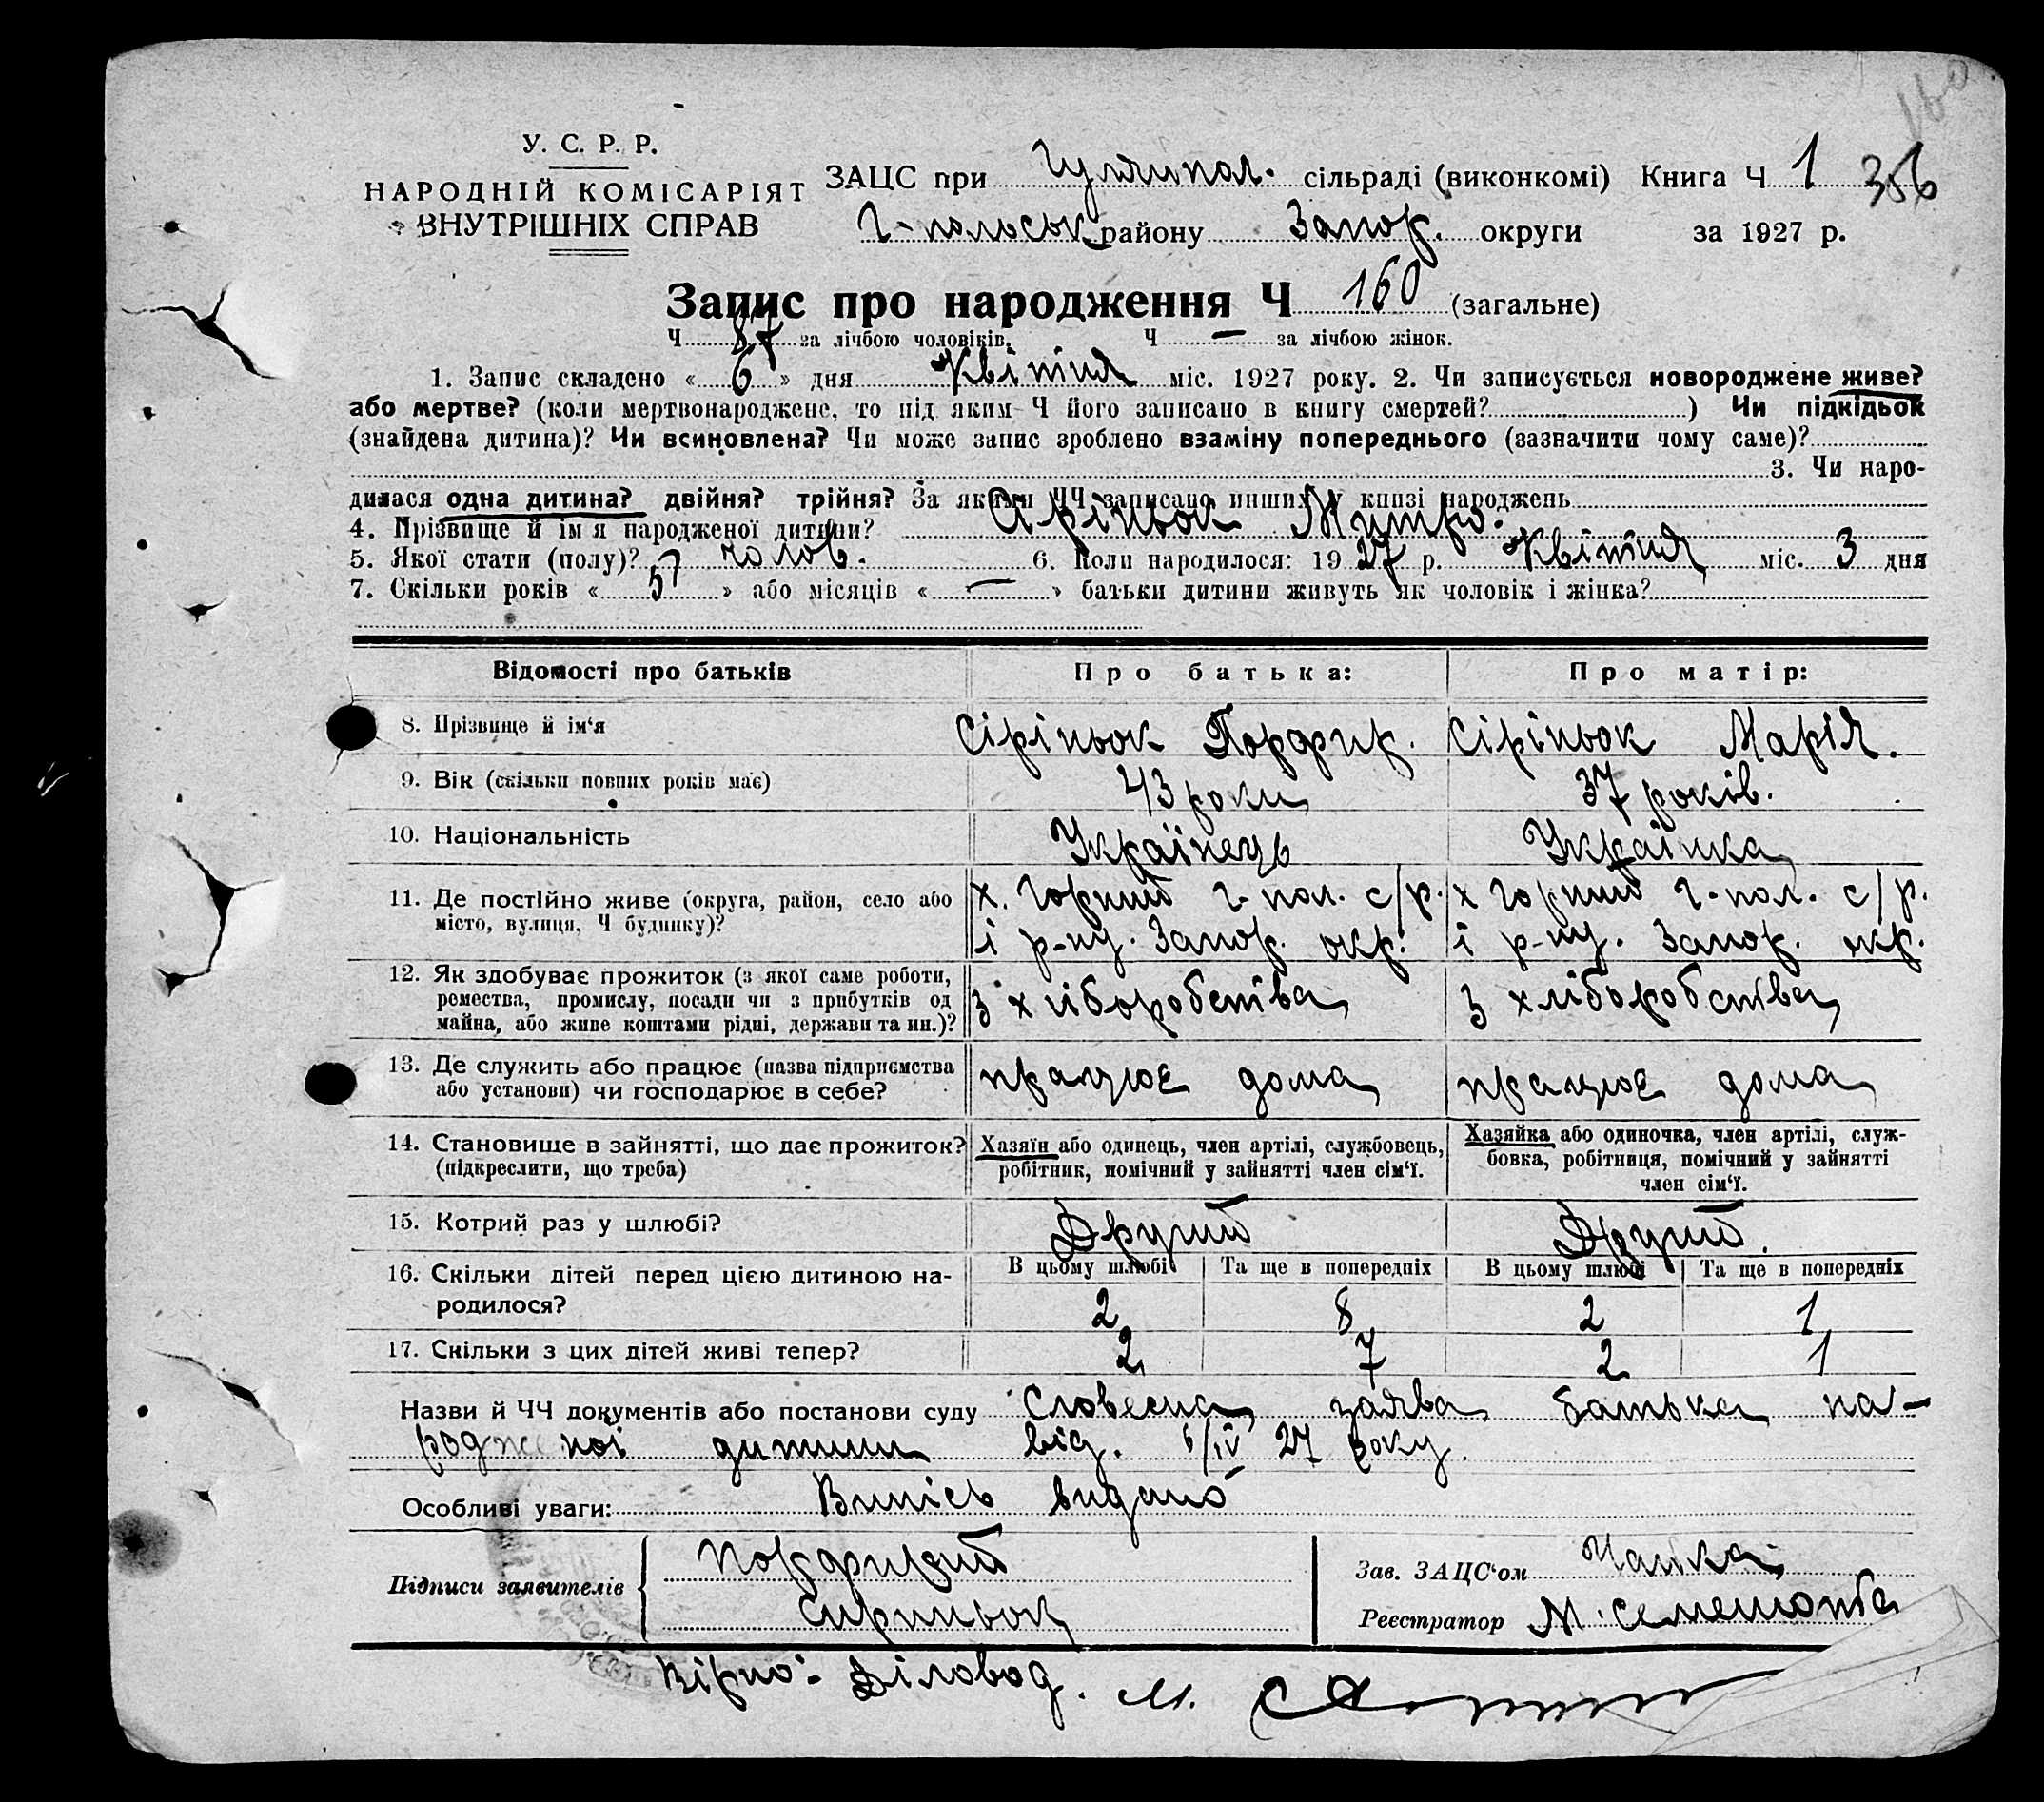 160
У. С. Р. Р.
НАРОДНІЙ КОМІСАРІЯТ
ВНУТРІШНІХ СПРАВ
ЗАЦС при Гуляйпол. сільраді (виконкомі) Книга Ч 1 356
Г-польськ району Запор. округи за 1927 р.
Запис про народження Ч 160 (загальне)
Ч 87 за лічбою чоловіків. Ч — за лічбою жінок.
1. Запис складено « 6 » дня Квітня міс. 1927 року. 2. Чи записується новороджене живе?
або мертве? (коли мертвонароджене, то під яким Ч його записано в книгу смертей? ) Чи підкідьок
(знайдена дитина)? Чи всиновлена? Чи може запис зроблено взаміну попереднього (зазначити чому саме)?
3. Чи наро-
дилася одна дитина? двійня? трійня? За якими ЧЧ записано инших у книзі народжень
4. Прізвище й ім'я народженої дитини? Сіріньок Митро.
5. Якої стати (полу)? чолов. 6. Коли народилося: 1927 р. Квітня міс. 3 дня
7. Скільки років « 5 » або місяців « — » батьки дитини живуть як чоловік і жінка?
Відомості про батьків Про батька: Про матір:
8. Прізвище й ім'я Сіріньок Порфир. Сіріньок Марія.
9. Вік (скільки повних років має) 43 роки 37 років.
10. Національність Українець Українка
11. Де постійно живе (округа, район, село або х. Горний Г-пол. с/р. х Горний Г-пол. с/р.
місто, вулиця, Ч будинку)? і р-ну. Запор. окр. і р-ну. Запор. окр.
12. Як здобуває прожиток (з якої саме роботи,
ремества, промислу, посади чи з прибутків од з хліборобства з хліборобства
майна, або живе коштами рідні, держави та ин.)?
13. Де служить або працює (назва підприємства працює дома працює дома
або установи) чи господарює в себе?
14. Становище в зайнятті, що дає прожиток? Хазяїн або одинець, член артілі, службовець, Хазяйка або одиночка, член артілі, служ-
(підкреслити, що треба) робітник, помічний у зайнятті член сім'ї. бовка, робітниця, помічний у зайнятті
член сім'ї.
15. Котрий раз у шлюбі? Другий Другий.
16. Скільки дітей перед цією дитиною на- В цьому шлюбі Та ще в попередніх В цьому шлюбі Та ще в попередніх
родилося? 2 8 2 1
17. Скільки з цих дітей живі тепер? 2 7 2 1
Назви й ЧЧ документів або постанови суду Словесна заява батька на-
родженої дитини від. 6/IV 27 року.
Особливі уваги: Випісь видано
Підписи заявителів Порфирий
Сириньок
Зав. ЗАЦС'ом
Реєстратор М.
Вірно: Діловод. М.